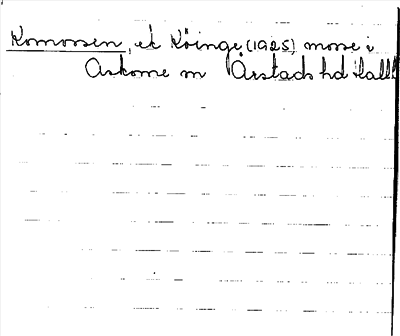 Komossen, ek Köinge (1925) mosse i
Askome sn Årstads hd Hall.